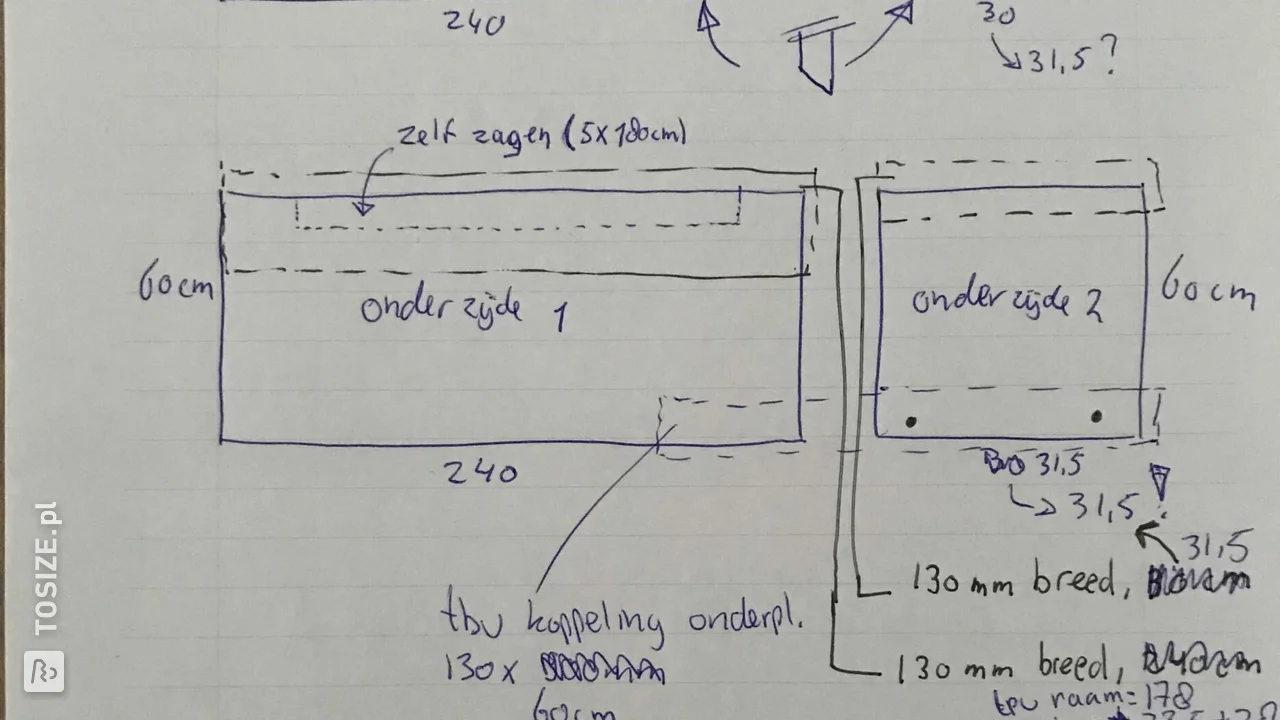 240
30
31,5?
zelf zagen (5x180cm)
60cm
onderzijde 1
onderzijde 2
60cm
240
31,5
31,5!
31,5
130 mm breed,
tbv koppeling onderpl.
130x
60cm
130 mm breed,
tpv raam=178
TOSIZE.pl